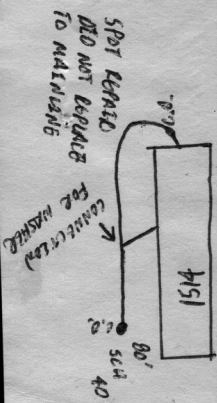 SPOT REPAIRED
DID NOT REPLACE
TO MAINLINE
C.O.
CONNECTION
FOR WASHER
1514
C.O.
80'
SCH
40